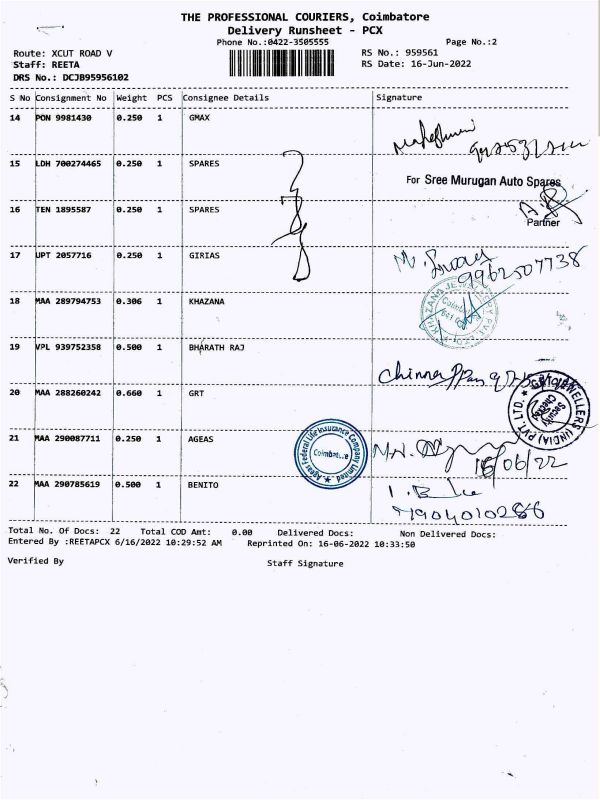 THE PROFESSIONAL COURIERS, Coimbatore
Delivery Runsheet - PCX
Phone No.:0422-3505555 Page No.:2
Route: XCUT ROAD V RS No.: 959561
Staff: REETA RS Date: 16-Jun-2022
DRS No.: DCJB95956102
S No Consignment No Weight PCS Consignee Details Signature
14 PON 9981430 0.250 1 GMAX
15 LDH 700274465 0.250 1 SPARES
For Sree Murugan Auto Spares
16 TEN 1895587 0.250 1 SPARES
Partner
17 UPT 2057716 0.250 1 GIRIAS
9962507738
18 MAA 289794753 0.306 1 KHAZANA
19 VPL 939752358 0.500 1 BHARATH RAJ
20 MAA 288260242 0.660 1 GRT
21 MAA 290087711 0.250 1 AGEAS
Ageas Federal Life Insurance Company Limited
Coimbatore
16/06/22
22 MAA 290785619 0.500 1 BENITO
7904010286
Total No. Of Docs: 22 Total COD Amt: 0.00 Delivered Docs: Non Delivered Docs:
Entered By :REETAPCX 6/16/2022 10:29:52 AM Reprinted On: 16-06-2022 10:33:50
Verified By Staff Signature